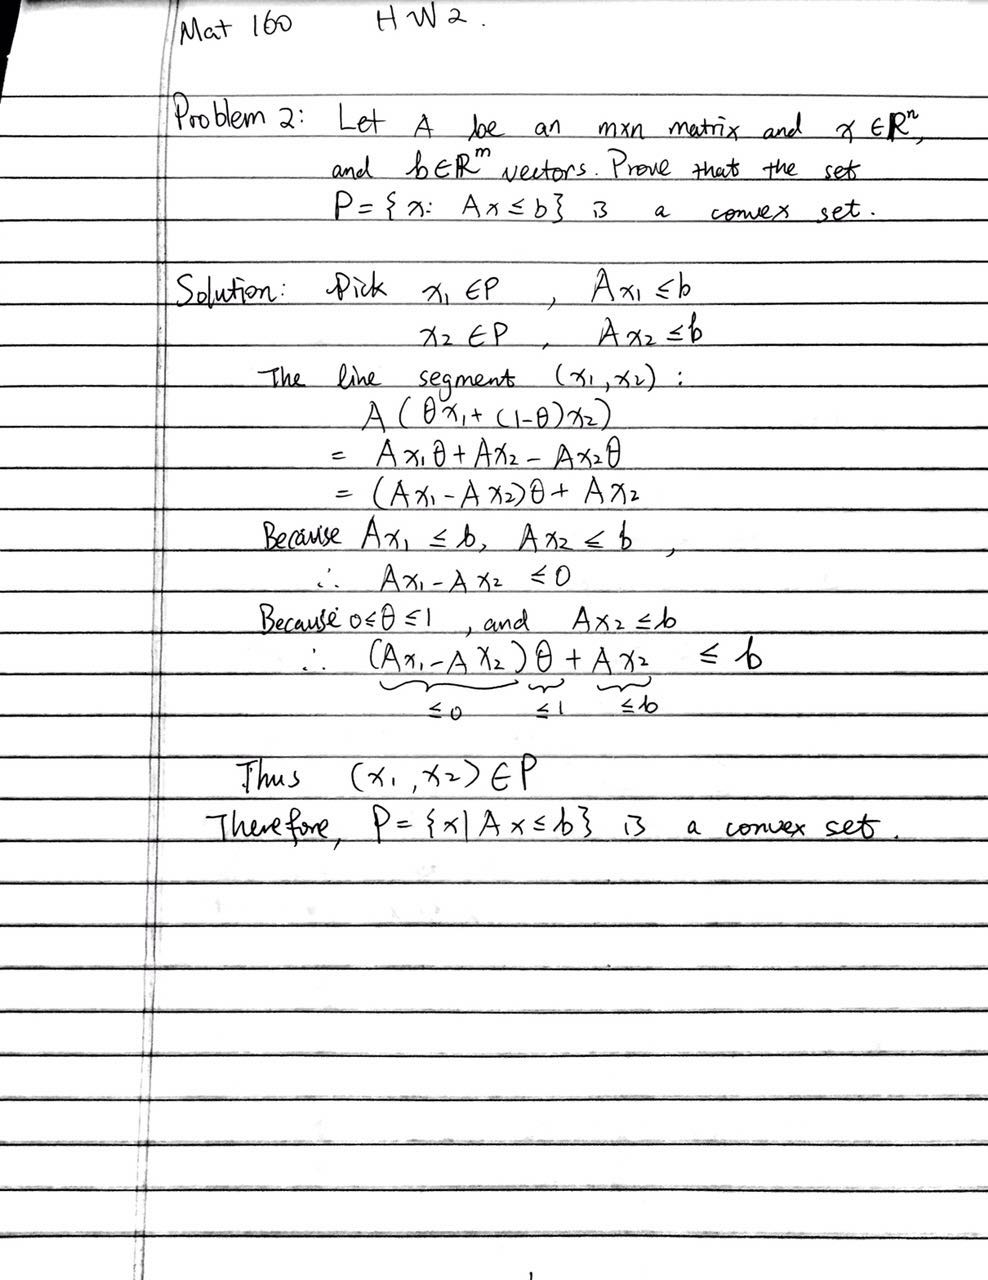 Mat 160 HW2.
Problem 2: Let A be an mxn matrix and x ∈ ℝⁿ,
and b∈ℝᵐ vectors. Prove that the set
P = { x: Ax ≤ b} is a convex set.
Solution: Pick x₁ ∈P , Ax₁ ≤ b
x₂ ∈P , Ax₂ ≤ b
The line segment (x₁, x₂) :
A ( θx₁ + (1-θ)x₂)
= Ax₁θ + Ax₂ - Ax₂θ
= (Ax₁ - Ax₂)θ + Ax₂
Because Ax₁ ≤ b, Ax₂ ≤ b ,
∴ Ax₁ - Ax₂ ≤ 0
Because 0≤θ ≤1 , and Ax₂ ≤ b
∴ (Ax₁ - Ax₂)θ + Ax₂ ≤ b
≤0 ≤1 ≤b
Thus (x₁, x₂) ∈ P
Therefore, P = {x| Ax ≤ b} is a convex set.